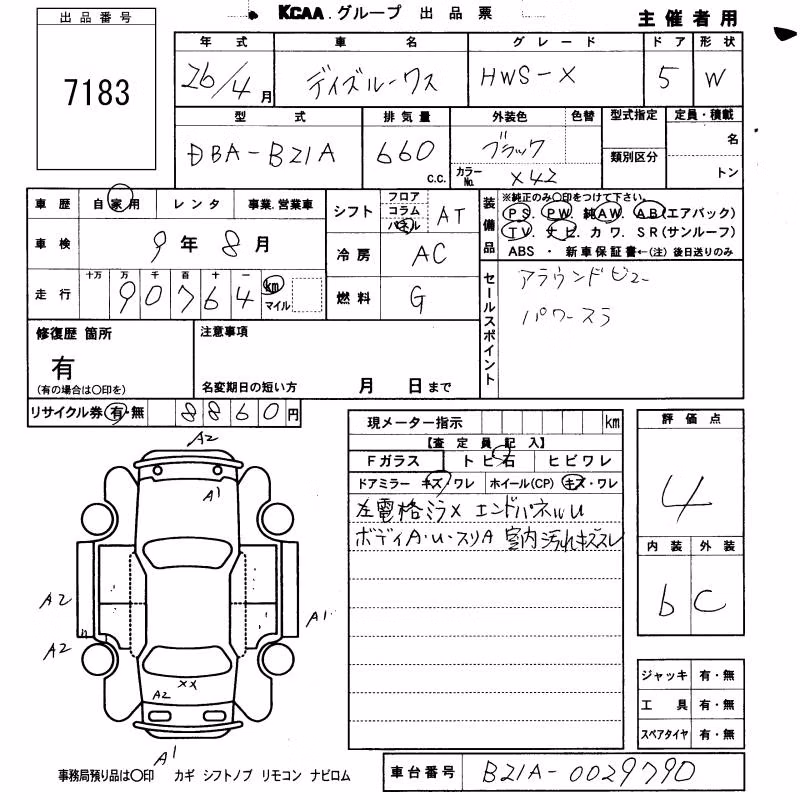 KCAA.グループ 出品票
主催者用
出品番号
7183
年式 車名 グレード ドア 形状
26/4月 デイズルークス HWS-X 5 W
型式 排気量 外装色 色替 型式指定 定員・積載
DBA-B21A 660 c.c. ブラック 類別区分 名
カラーNo. X42 トン
車歴 自家用 レンタ 事業.営業車
車検 9年8月
走行 十万 万 千 百 十 一
90764 km マイル
シフト フロア コラム パネル AT
冷房 AC
燃料 G
装備品 ※純正のみ○印をつけて下さい。
PS. PW. 純AW. AB(エアバック)
TV. ナビ. カワ. SR(サンルーフ)
ABS ・ 新車保証書←(注)後日送りのみ
セールスポイント
アラウンドビュー
パワースラ
修復歴 箇所
有
(有の場合は○印を)
注意事項
名変期日の短い方 月 日まで
リサイクル券 有・無 8860円
現メーター指示 km
【査定員記入】
Fガラス トビ石 ヒビワレ
ドアミラー キズ・ワレ ホイール(CP) キズ・ワレ
左電格ミラ× エンドパネルU
ボディA・U・スリA 室内汚れキズスレ
評価点
4
内装 外装
b C
ジャッキ 有・無
工具 有・無
スペアタイヤ 有・無
A2
A1
A2
A1
A2
XX
A2
A1
事務局預り品は○印 カギ シフトノブ リモコン ナビロム
車台番号 B21A-0029790